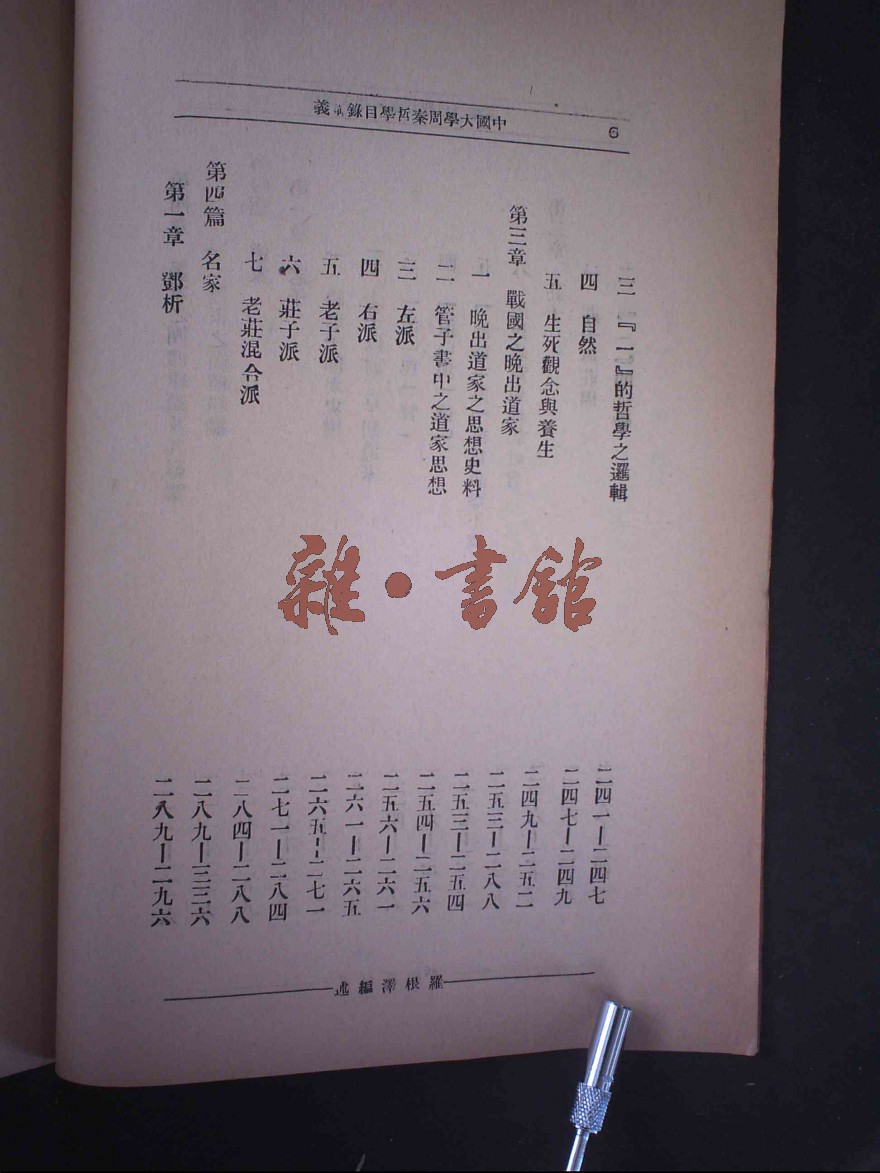 6
中國大學周秦哲學目錄 義
三 『一』的哲學之邏輯 二四一—二四七
四 自然 二四七—二四九
五 生死觀念與養生 二四九—二五二
第三章 戰國之晚出道家 二五三—二八八
一 晚出道家之思想史料 二五三—二五四
二 管子書中之道家思想 二五四—二五六
三 左派 二五六—二六一
四 右派 二六一—二六五
五 老子派 二六五—二七一
六 莊子派 二七一—二八四
七 老莊混合派 二八四—二八八
第四篇 名家 二八九—三三六
第一章 鄧析 二八九—二九六
雜·書館
羅根澤編述